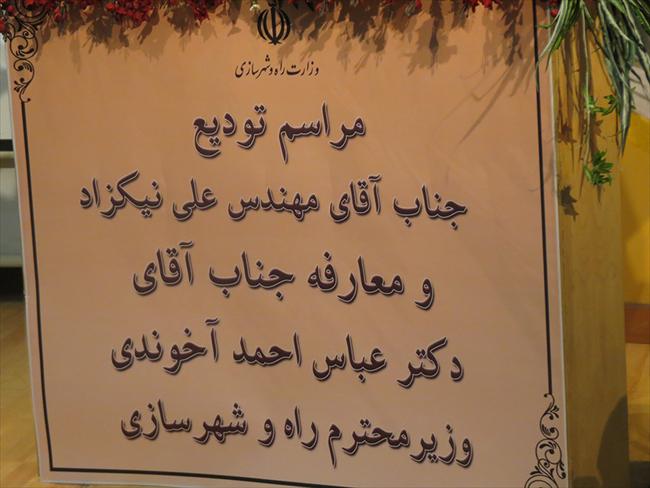 وزارت راه و شهرسازی
مراسم تودیع
جناب آقای مهندس علی نیکزاد
و معارفه جناب آقای
دکتر عباس احمد آخوندی
وزیر محترم راه و شهرسازی